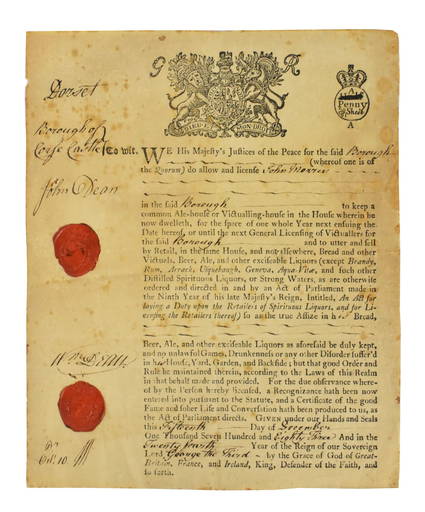 G R
A
Penny
pr Sheet
A
Dorset
Borough of
Corfe Castle To wit.
WE His Majesty's Justices of the Peace for the said Borough
(whereof one is of
the Quorum) do allow and license John
in the said Borough to keep a
common Ale-house or Victualling-house in the House wherein he
now dwelleth, for the space of one whole Year next ensuing the
Date hereof, or until the next General Licensing of Victuallers for
the said Borough and to utter and sell
by Retail, in the same House, and not elsewhere, Bread and other
Victuals, Beer, Ale, and other exciseable Liquors (except Brandy,
Rum, Arrack, Usquebaugh, Geneva, Aqua-Vitæ, and such other
Distilled Spirituous Liquors, or Strong Waters, as are otherwise
ordered and directed in and by an Act of Parliament made in
the Ninth Year of his late Majesty's Reign, Entitled, An Act for
laying a Duty upon the Retailers of Spirituous Liquors, and for Li-
censing the Retailers thereof) so as the true Assize in his Bread,
Beer, Ale, and other exciseable Liquors as aforesaid be duly kept,
and no unlawful Games, Drunkenness or any other Disorder suffer'd
in his House, Yard, Garden, and Backside; but that good Order and
Rule be maintained therein, according to the Laws of this Realm
in that behalf made and provided. For the due observance where-
of by the Person hereby licensed, a Recognizance hath been now
entered into pursuant to the Statute, and a Certificate of the good
Fame and sober Life and Conversation hath been produced to us, as
the Act of Parliament directs. GIVEN under our Hands and Seals
this Fifteenth Day of December
One Thousand Seven Hundred and Eighty Three And in the
Twenty fourth Year of the Reign of our Sovereign
Lord George the Third by the Grace of God of Great-
Britain, France, and Ireland, King, Defender of the Faith, and
so forth.
John Dean
Wm